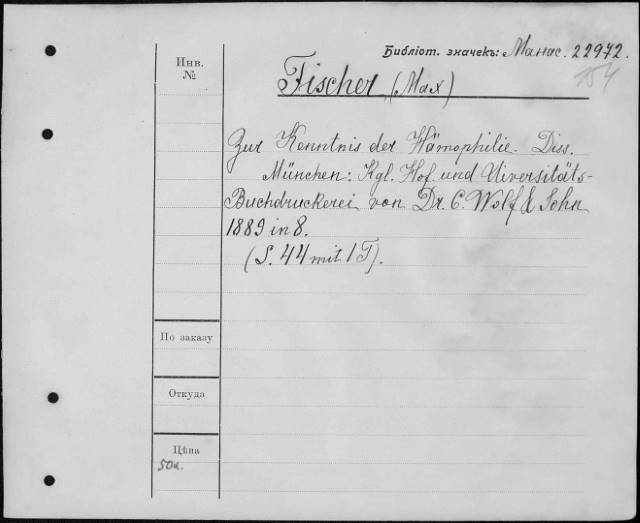 Библіот. значекъ: Манас. 22972.
154
Инв.
№
Fischer (Max)
Zur Kenntnis der Hämophilie. Diss.
München: Kgl. Hof und Uiversitäts-
Buchdruckerei von Dr. C. Wolf & Sohn
1889 in 8.
(S. 44 mit 1 T).
По заказу
Откуда
Цѣна
50к.